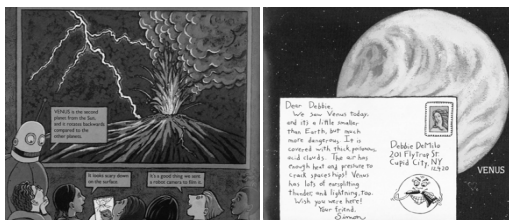 VENUS is the second
planet from the Sun,
and it rotates backwards
compared to the
other planets.
It looks scary down
on the surface.
It's a good thing we sent
a robot camera to film it.
Dear Debbie,
We saw Venus today,
and it's a little smaller
than Earth, but much
more dangerous. It is
covered with thick, poisonous,
acid clouds. The air has
enough heat and pressure to
crack spaceships! Venus
has lots of earsplitting
thunder and lightning, too.
Wish you were here!
Your friend,
Simon
Debbie DeMilo
201 Flytrap St.
Cupid City, NY
12420
VENUS